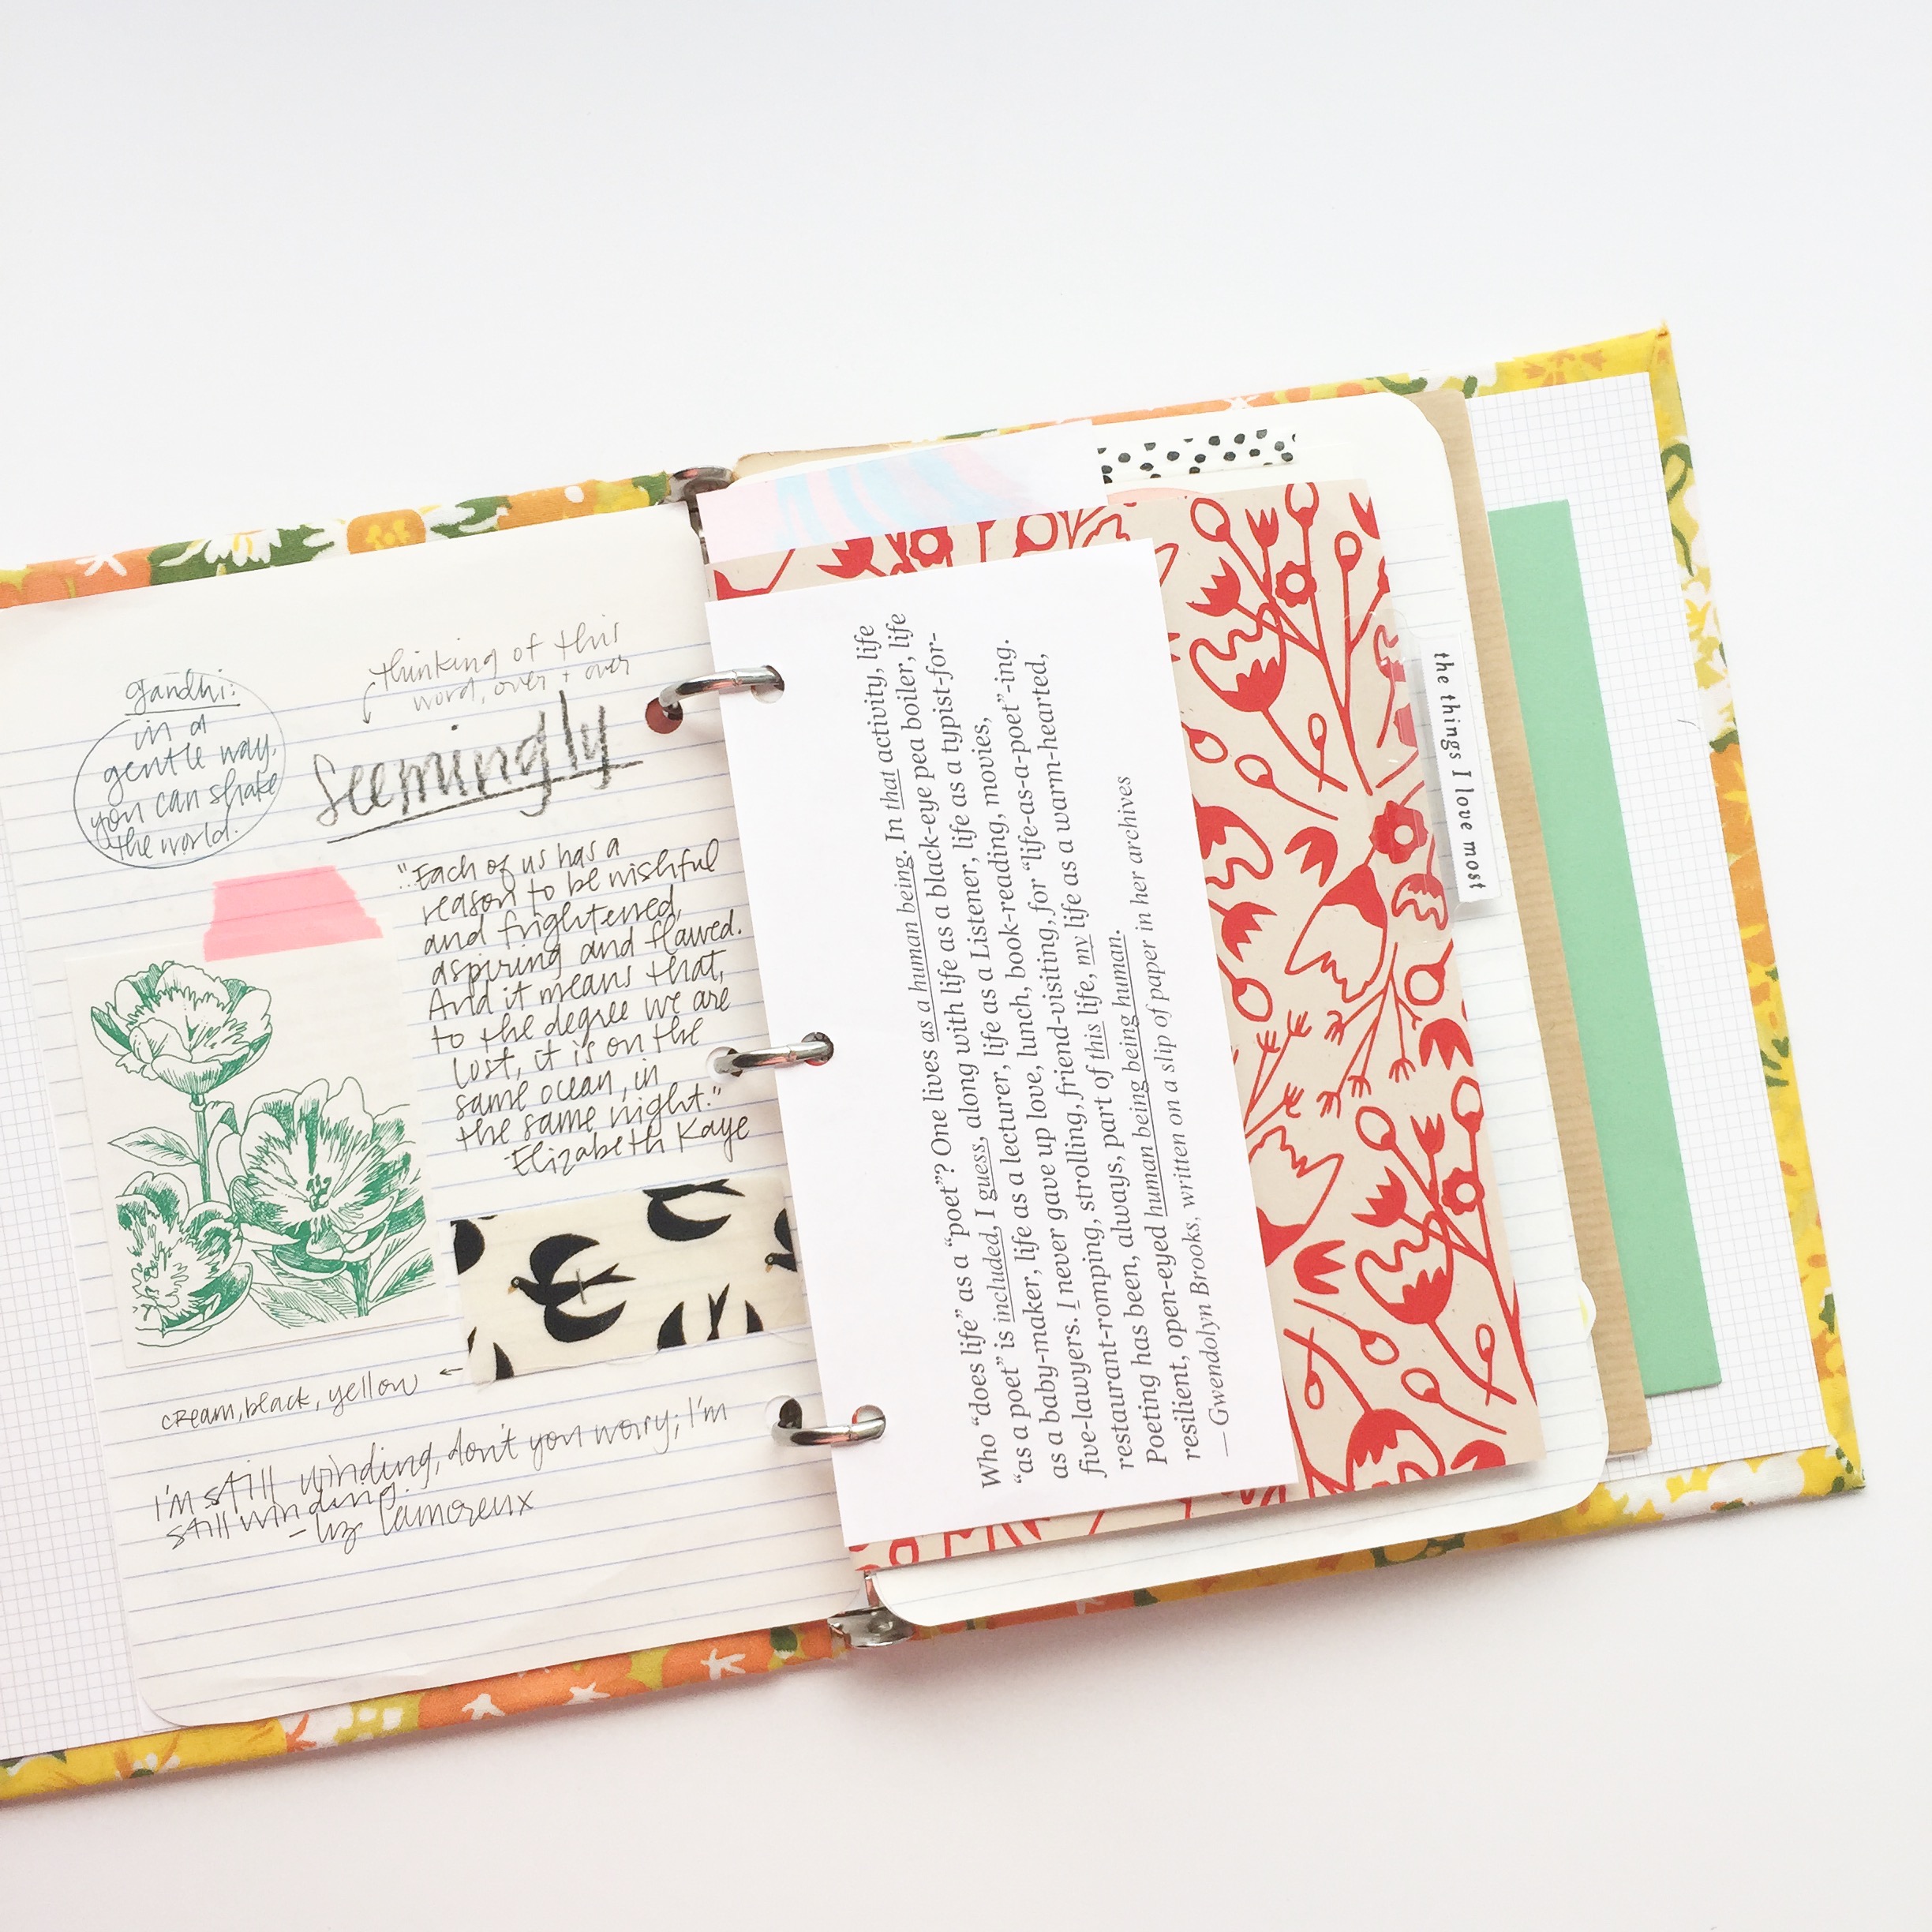 gandhi:
in a
gentle way,
you can shake
the world.
thinking of this
word, over + over
Seemingly
"Each of us has a
reason to be wishful
and frightened,
aspiring and flawed.
And it means that,
to the degree we are
lost, it is on the
same ocean, in
the same night."
-Elizabeth Kaye
cream, black, yellow
i'm still winding, don't you worry; I'm
still winding.
- liz lamoreux
Who “does life” as a “poet”? One lives as a human being. In that activity, life
“as a poet” is included, I guess, along with life as a black-eye pea boiler, life
as a baby-maker, life as a lecturer, life as a Listener, life as a typist-for-
five-lawyers. I never gave up love, lunch, book-reading, movies,
restaurant-romping, strolling, friend-visiting, for “life-as-a-poet”-ing.
Poeting has been, always, part of this life, my life as a warm-hearted,
resilient, open-eyed human being being human.
— Gwendolyn Brooks, written on a slip of paper in her archives
the things I love most